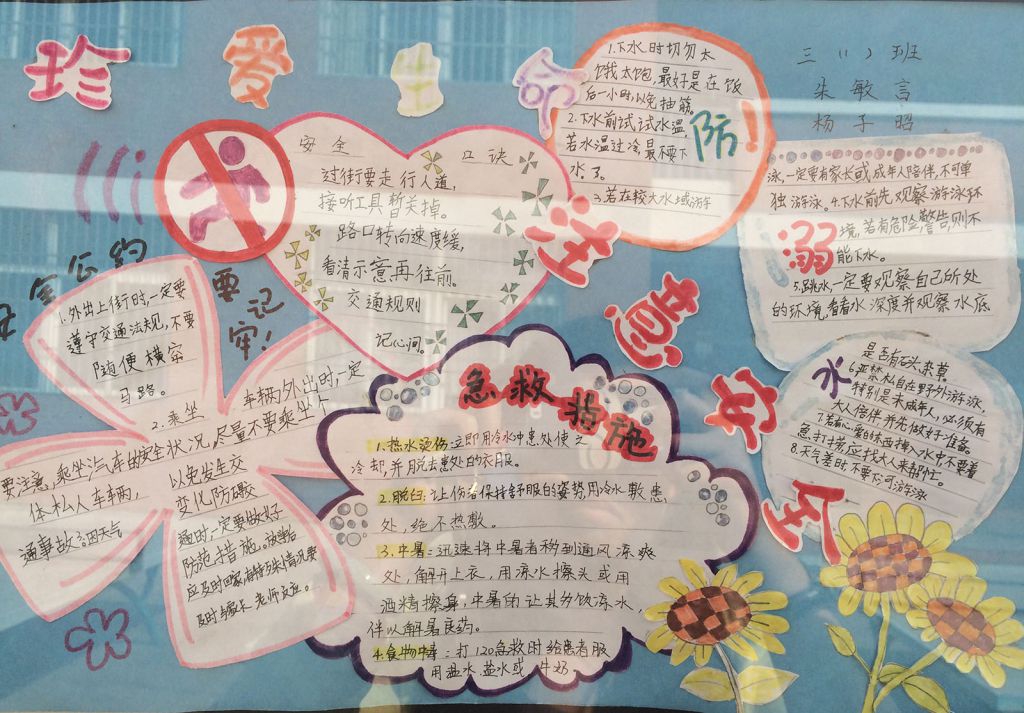 珍爱生命
注意安全
三(1)班
朱敏言
杨子昭
安全 口诀
过街要走行人道,
接听工具暂关掉。
路口转向速度缓,
看清示意再往前。
交通规则
记心间。
1.下水时切勿太
饿太饱,最好是在饭
后一小时,以免抽筋。
2.下水前试试水温,
若水温过冷,最不要下
水了。
3.若在较大水域游
防
泳,一定要有家长或成年人陪伴,不可单
独游泳。4.下水前先观察游泳环
境,若有危险警告,则不
能下水。
5.跳水一定要观察自己所处
的环境,看看水深度并观察水底
溺
是否有石头,杂草。
6.严禁私自在野外游泳,
特别是未成年人,必须有
大人陪伴并先做好准备。
急,打捞应找大人来帮忙。
8.天气差时不要
水
安全公约
要记牢!
1.外出上街时,一定要
遵守交通法规,不要
随便横穿
马路。
2.乘坐
车辆外出时,一定
要注意,乘坐汽车的安全状况,尽量不要乘坐个
体私人车辆,
以免发生交
通事故。3.因天气
变化防碍
通时,一定要做好
防范措施。放学后
应及时回家,有特殊情况要
及时与家长、老师反应。
急救措施
1.热水烫伤:立即用冷水冲患处使之
冷却,并脱去患处的衣服。
2.脱臼:让伤者保持舒服的姿势,用冷水敷患
处,绝不热敷。
3.中暑:迅速将中暑者移到通风凉爽
处,解开上衣,用凉水擦头或用
酒精擦身,中暑的让其多饮凉水,
伴以解暑良药。
4.食物中毒:打120急救时给患者服
用温水、盐水或牛奶。